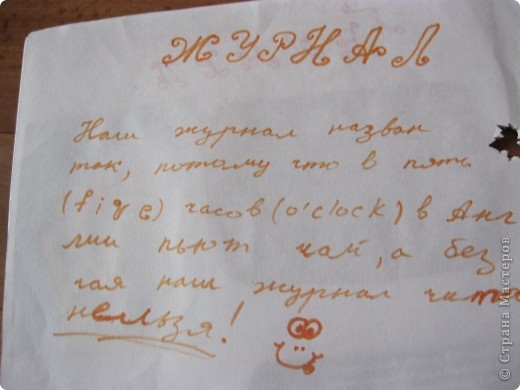 ЖУРНАЛ
Наш журнал назван
так, потому что в пять
(five) часов (o'clock) в Анг
лии пьют чай, а без
чая наш журнал чит
нельзя!
© Страна Мастеров